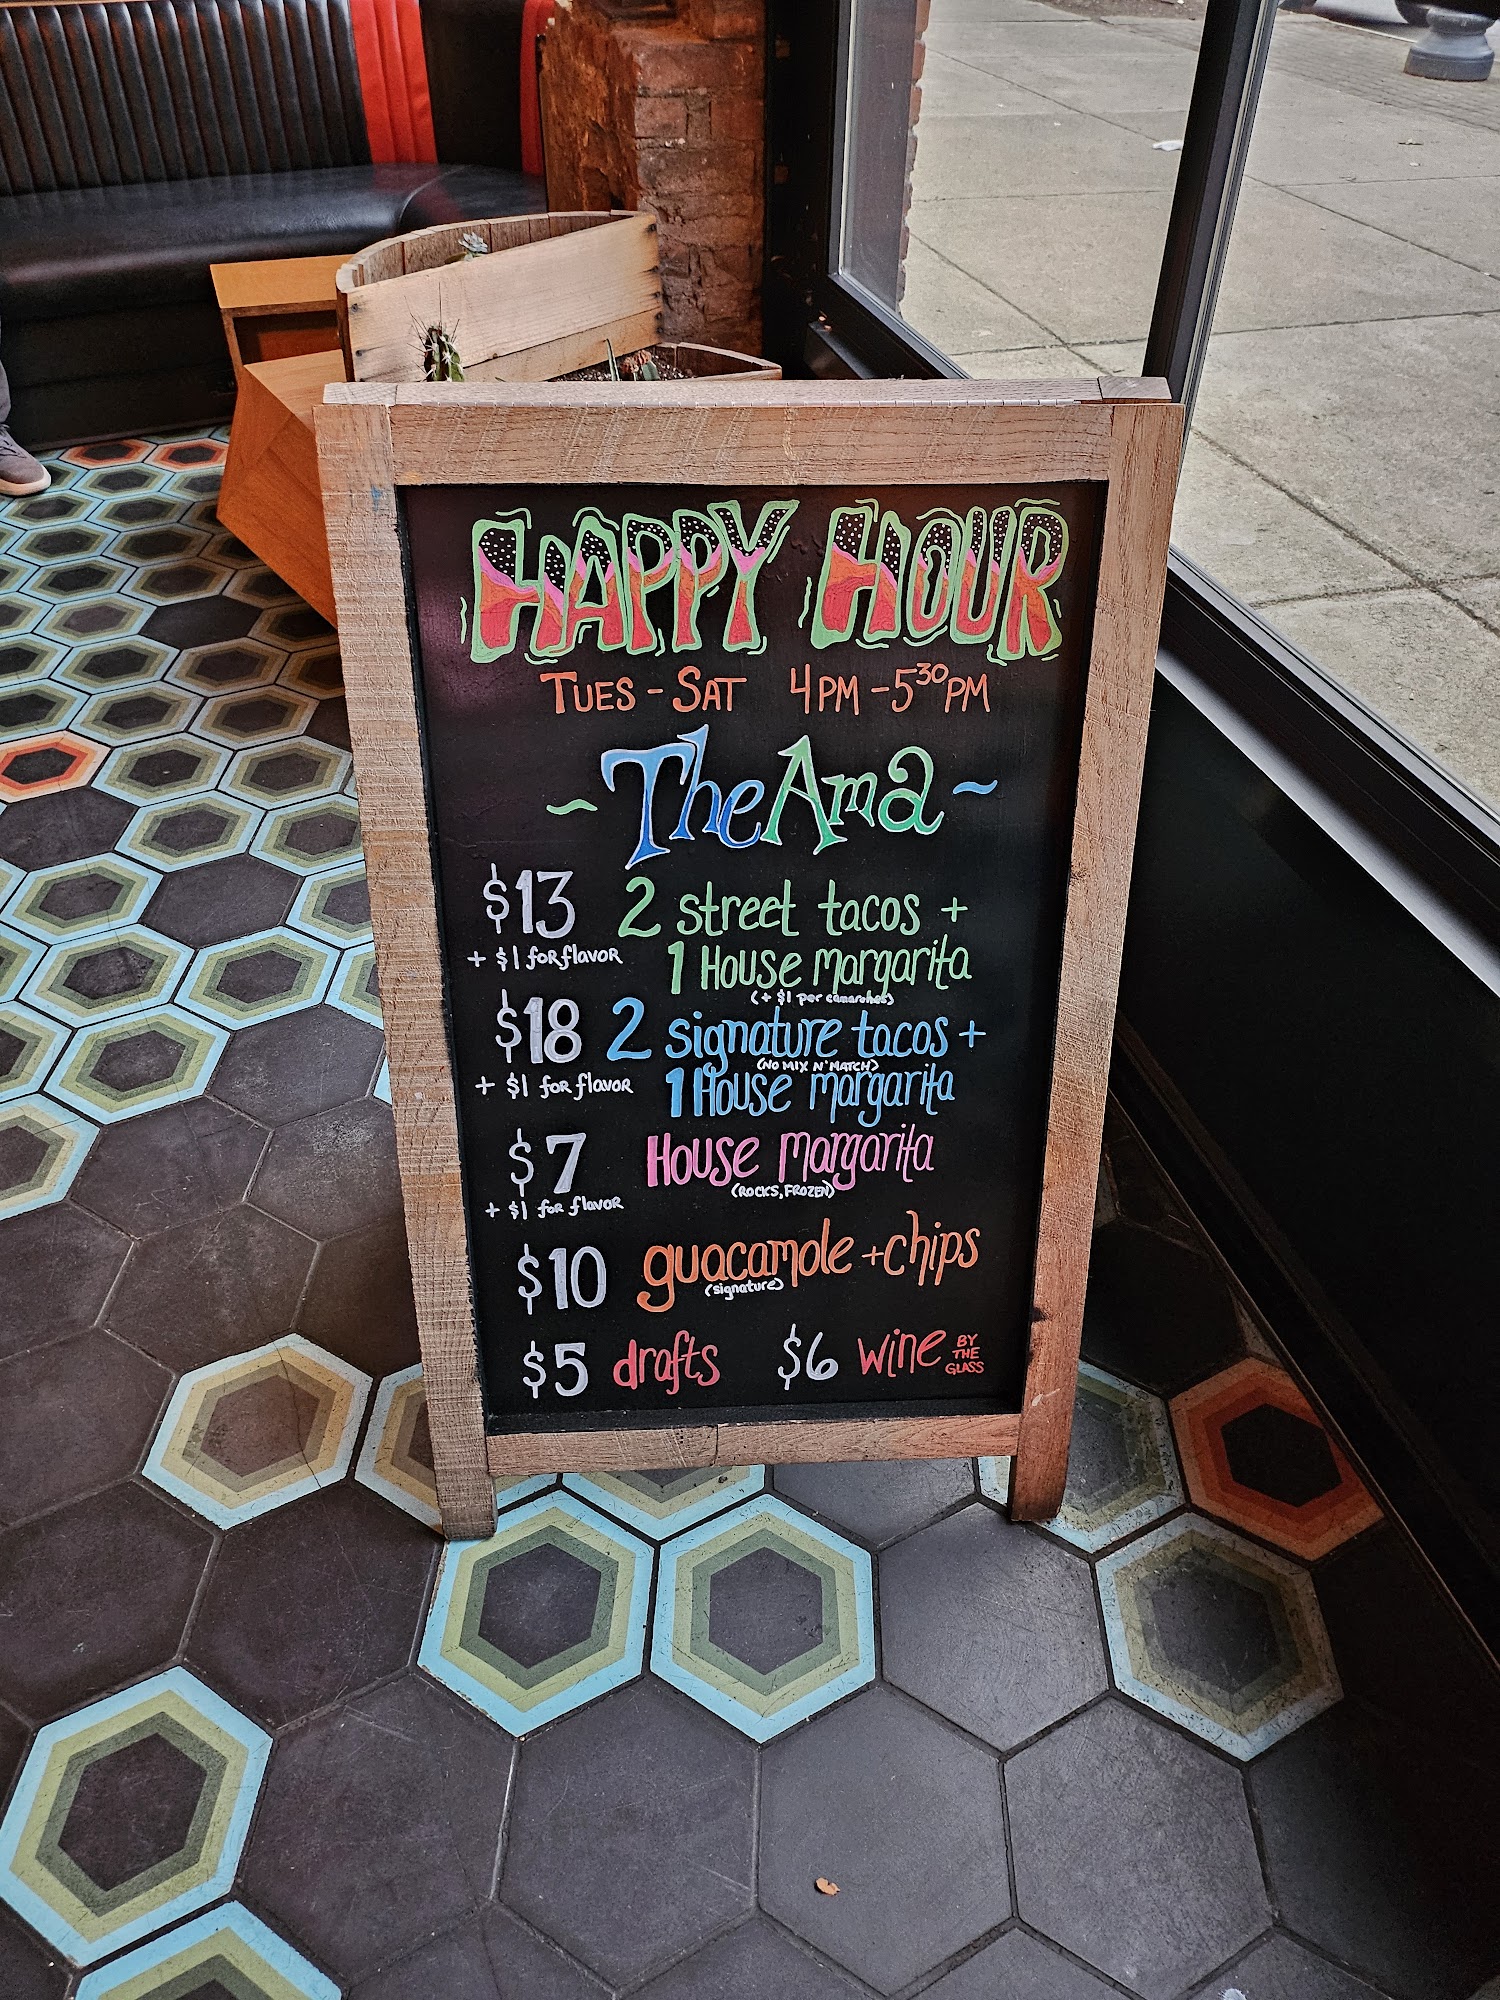 HAPPY HOUR
TUES - SAT 4PM - 5³⁰PM
~ The Ama ~
$13 2 street tacos +
+ $1 for flavor 1 House margarita
(+ $1 per camarones)
$18 2 signature tacos +
(NO MIX N' MATCH)
+ $1 for flavor 1 House margarita
$7 House margarita
+ $1 for flavor (ROCKS, FROZEN)
$10 guacamole + chips
(signature)
$5 drafts $6 wine BY THE GLASS